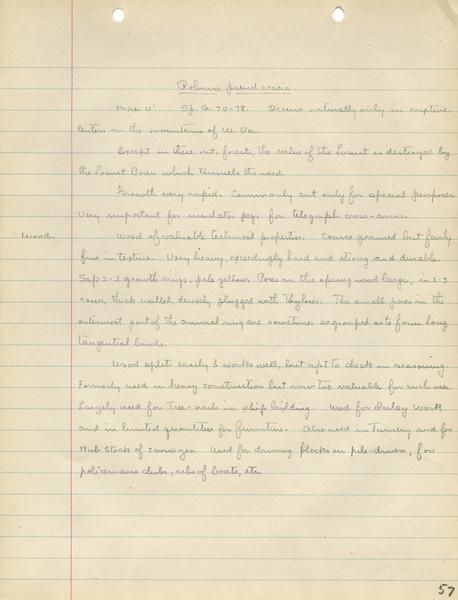 Robinia pseudacacia
Max 4'. Sp. G. 70-78. Occurs naturally only in mixture.
Centers in the mountains of W. Va.
Except in these mt. forests, the value of the Locust is destroyed by
the Locust Borer which tunnels the wood.
Growth very rapid. Commonly cut only for special purposes.
Very important for insulator pegs for telegraph cross-arms.
Wood. Wood of valuable technical properties. Coarse grained but fairly
fine in texture. Very heavy, exceedingly hard and strong and durable.
Sap 2-3 growth rings, pale yellow. Pores in the spring wood large, in 2-3
rows, thick walled, densely plugged with Thyloses. The small pores in the
outermost part of the annual ring are sometimes so grouped as to form long
tangential bands.
Wood splits easily & works well, but apt to check in seasoning.
Formerly used in heavy construction but now too valuable for such use.
Largely used for Tree-nails in ship bilding. Used for Inlay Work
and in limited quantities for furniture. Also used in Turnery and for
Hub Stock of carriages. Used for driving blocks on pile-drivers, for
policemans clubs, ribs of boats, etc.
57